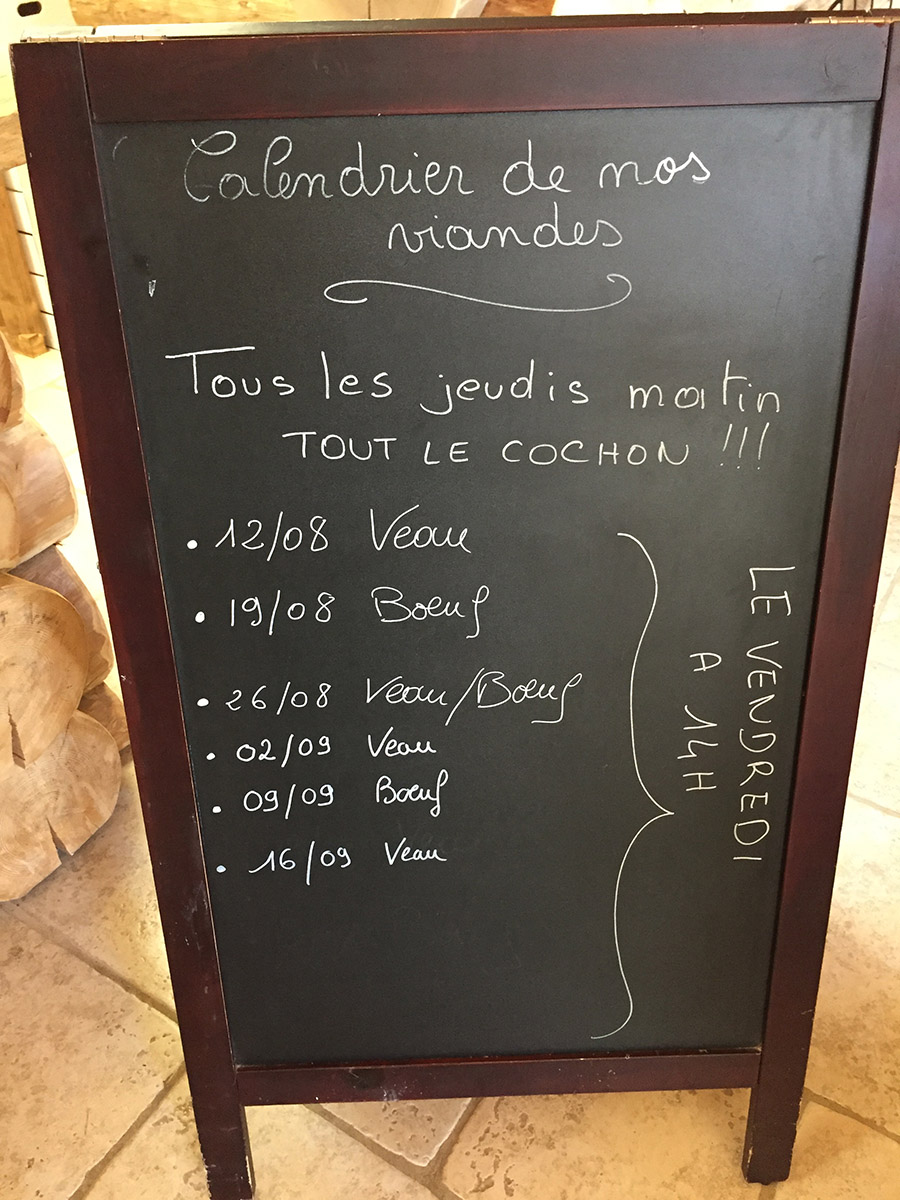 Calendrier de nos
viandes
Tous les jeudis matin
TOUT LE COCHON !!!
• 12/08 Veau
• 19/08 Boeuf
• 26/08 Veau/Boeuf
• 02/09 Veau
• 09/09 Boeuf
• 16/09 Veau
LE VENDREDI
A 14H